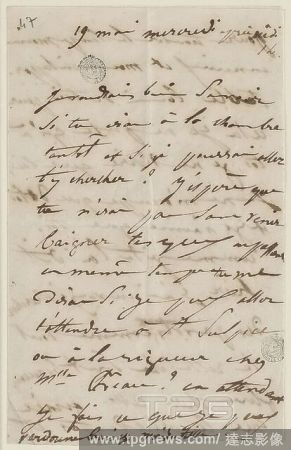 47
19 mai mercredi après midi
Je voudrais bien savoir
si tu iras à la chambre
tantôt et si je pourrai aller
t'y chercher? J'espère que
tu n'iras pas sans venir
baigner tes yeux
en même temps tu me
diras si je puis aller
t'attendre à St Sulpice
ou à la rigueur chez
Mlle ? en attendant
je fais ce que je puis
TPG
www.tpgnews.com / 達志影像